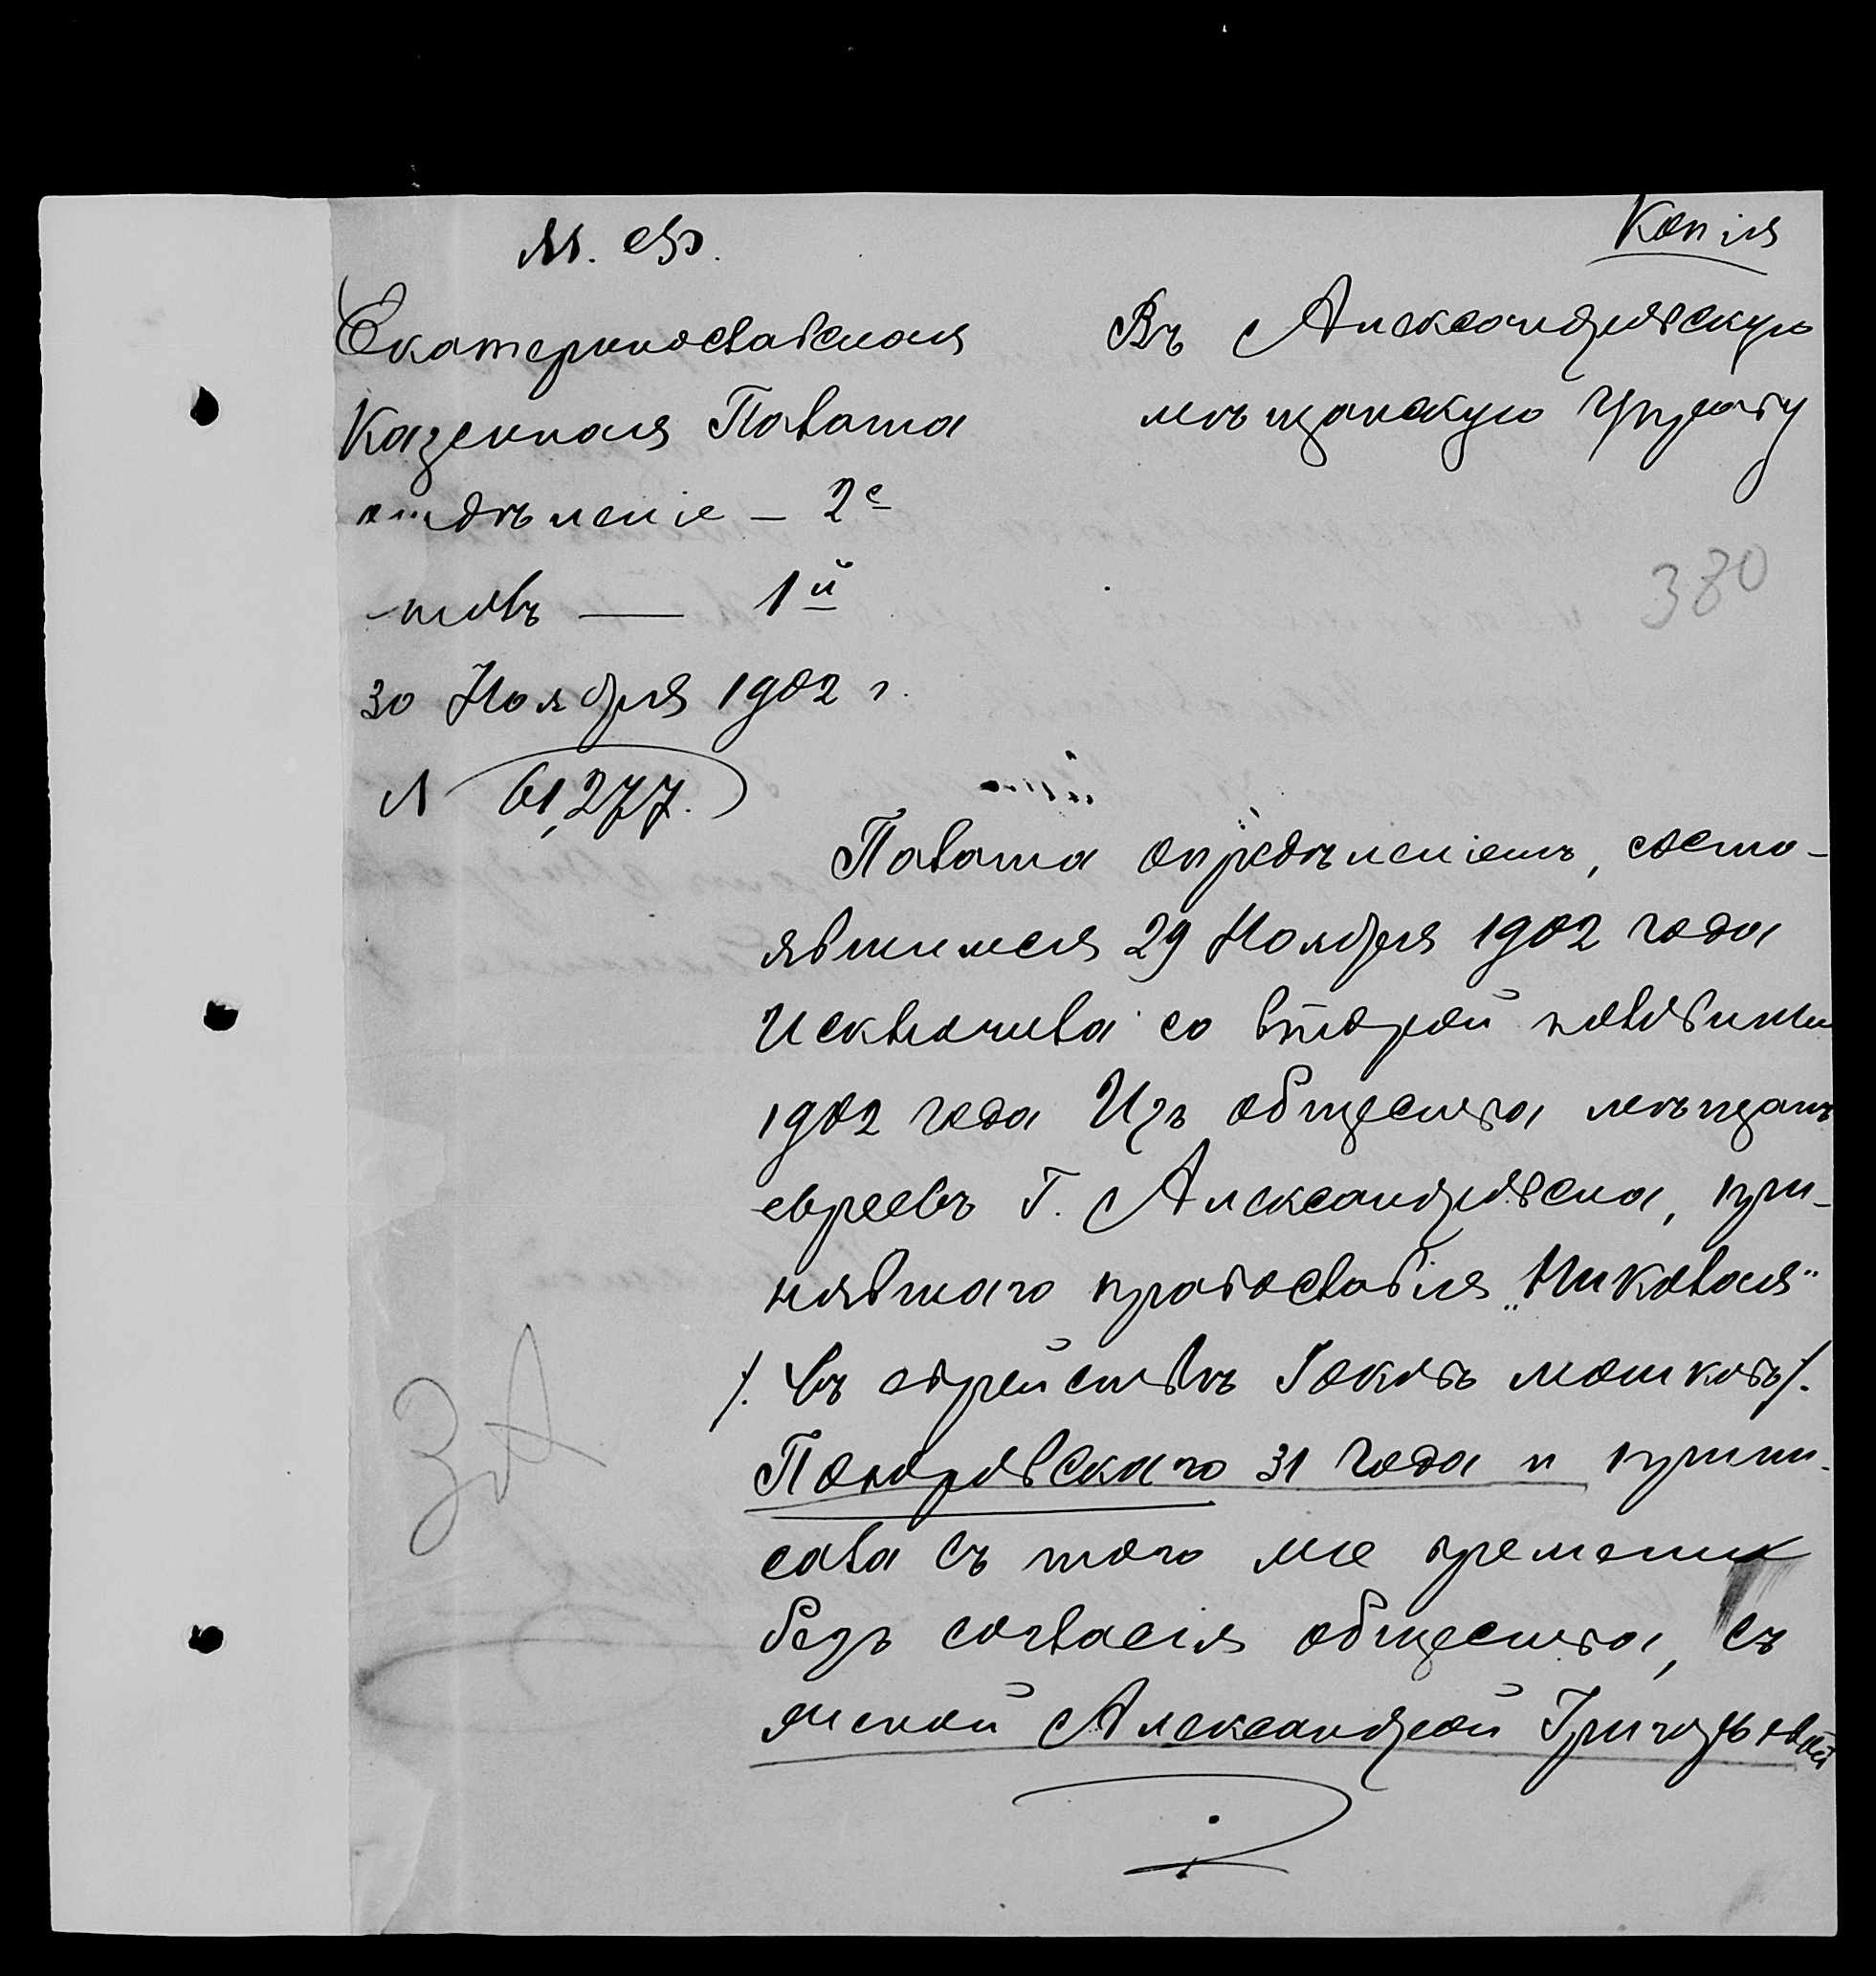 М. Ф.
Копія
Екатеринославская
Казенная Палата
отдѣленіе – 2е
столъ — 1й
30 Ноября 1902 г.
№ 61,277.
Въ Александровскую
мѣщанскую Управу
380
Палата опредѣленіемъ, состо-
явшимся 29 Ноября 1902 года
Исключила со второй половины
1902 года Изъ общества мѣщанъ
евреевъ Г. Александровска, при-
нявшаго православія „Николая“
/. въ еврействѣ Іоковъ мошковъ/.
Покровскаго 31 года и припи-
сала съ того же времени
безъ согласія общества, съ
женой Александрой Григорьевной